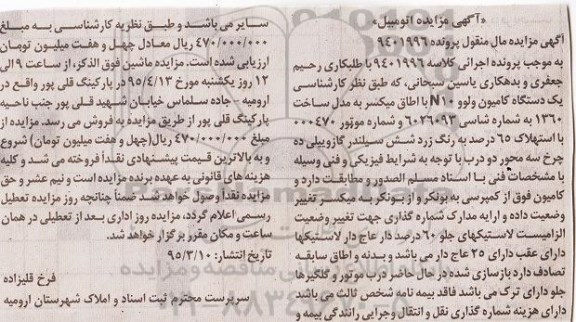 «آگهی مزایده اتومبیل»
آگهی مزایده مال منقول پرونده ۹۴۰۱۹۹۶
به موجب پرونده اجرائی کلاسه ۹۴۰۱۹۹۶ با طلبکاری رحیم
جعفری و بدهکاری یاسین سبحانی، که طبق نظر کارشناسی
یک دستگاه کامیون ولوو N۱۰ با اطاق میکسر به مدل ساخت
۱۳۶۰ به شماره شاسی ۶۰۲۶۰۹۳ و شماره موتور ۰۰۰۴۷۰
با استهلاک ۶۵ درصد به رنگ زرد شش سیلندر گازوییلی ده
چرخ سه محور دو درب با توجه به شرایط فیزیکی و فنی وسیله
با مشخصات فنی با اسناد مسلم الصدور و مطابقت دارد و
کامیون فوق از کمپرسی به بونکر و از بونکر به میکسر تغییر
وضعیت داده و ارایه مدارک شماره گذاری جهت تغییر وضعیت
الزامیست لاستیکهای جلو ۶۰ درصد دار عاج دار لاستیکها
دارای عقب دارای ۲۵ عاج دار می باشد و بدنه و اطاق سابقه
تصادف دارد بازسازی شده در حال حاضر درب موتور و گلگیرها
جلو دارای ترک می باشد فاقد بیمه نامه شخص ثالث می باشد
دارای هزینه شماره گذاری نقل و انتقال وجرایی رانندگی بیمه و
سایر می باشد و طبق نظریه کارشناسی به مبلغ
۴۷۰/۰۰۰/۰۰۰ ریال معادل چهل و هفت میلیون تومان
ارزیابی شده است. مزایده ماشین فوق الذکر، از ساعت ۹ الی
۱۲ روز یکشنبه مورخ ۹۵/۴/۱۳ در پارکینگ قلی پور واقع در
ارومیه - جاده سلماس خیابان شهید قلی پور جنب ناحیه
پارکینگ قلی پور از طریق مزایده به فروش می رسد. مزایده از
مبلغ ۴۷۰/۰۰۰/۰۰۰ ریال(چهل و هفت میلیون تومان) شروع
و به بالاترین قیمت پیشنهادی نقداً فروخته می شد و کلیه
هزینه های قانونی به عهده برنده مزایده است و نیم عشر و حق
مزایده نقداً وصول خواهد شد. ضمناً چنانچه روز مزایده تعطیل
رسمی اعلام گردد، مزایده روز اداری بعد از تعطیلی در همان
ساعت و مکان مقرر برگزار خواهد شد.
تاریخ انتشار: ۹۵/۳/۱۰
فرخ قلیزاده
سرپرست محترم ثبت اسناد و املاک شهرستان ارومیه